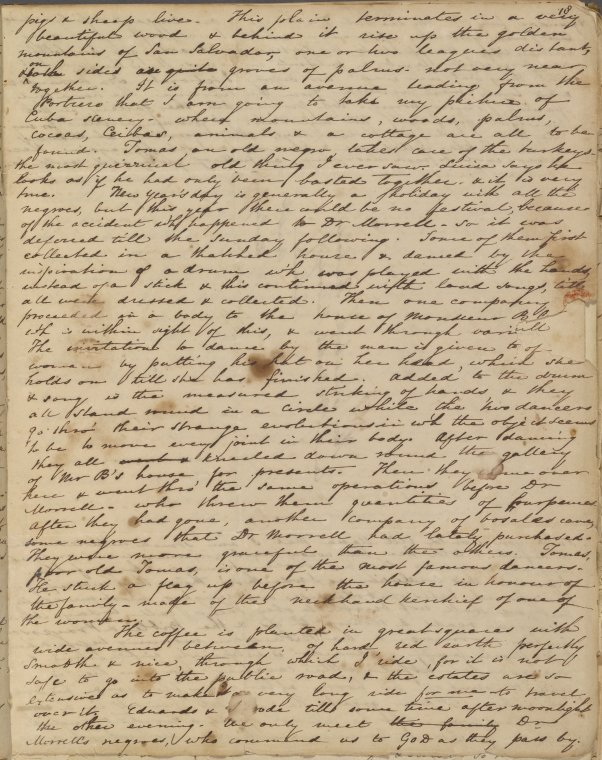 18
pigs & sheep live. This plain terminates in a very
beautiful wood & behind it rise up the golden
mountains of San Salvador, one or two leagues distant,
on sides groves of palms - not very near
together. It is from an avenue leading from the
Potrero that I am going to take my picture of
Cuba scenery - where mountains, woods, palms,
cocoas, Ceibas, animals & a cottage are all to be
found. Tomas an old negro takes care of the turkeys -
the most quizzical old thing I ever saw. Luisa says he
looks as if he had only been basted together. & it is very
true. New Year's day is generally a holiday with all the
negroes, but this year there could be no festival, because
of the accident wh happened to Dr Morrell - so it was
deferred till the Sunday following. Some of them first
collected in a thatched house & danced by the
inspiration of a drum wh was played with the hands,
instead of a stick & this continued with loud songs, till
all were dressed & collected. Then one company
proceeded in a body to the house of Monsieur
is within sight of this, & went through
The invitation to dance by the man is given to
woman by putting his hat on her head, which she
holds on till she has finished. Added to the drum
& song is the measured striking of hands & they
all stand round in a circle while the two dancers
go thro' their strange evolutions in wh the object seems
to be to move every joint in their body. After dancing
they all kneeled down round the gallery
of Mr B's house for presents. Then they came over
here & went thro the same operations before Dr
Morrell - who threw them quantities of fourpences
After they had gone, another company of bosales came,
some negroes that Dr Morrell had lately purchased -
They were more graceful than the others. Tomas,
poor old Tomas, is one of the most famous dancers.
He stuck a flag up before the house in honour of
the family - made of the neckhandkerchief of one of
the women.
The coffee is planted in great squares with
wide avenues between, of hard red earth perfectly
smooth & nice, through which I ride, for it is not
safe to go into the public road, & the estates are so
extensive as to make a very long ride for me to travel
over it. Eduardo & I rode till some time after moonlight
the other evening. We only meet the family Dr
Morrell's negroes, who commend us to God as they pass by.